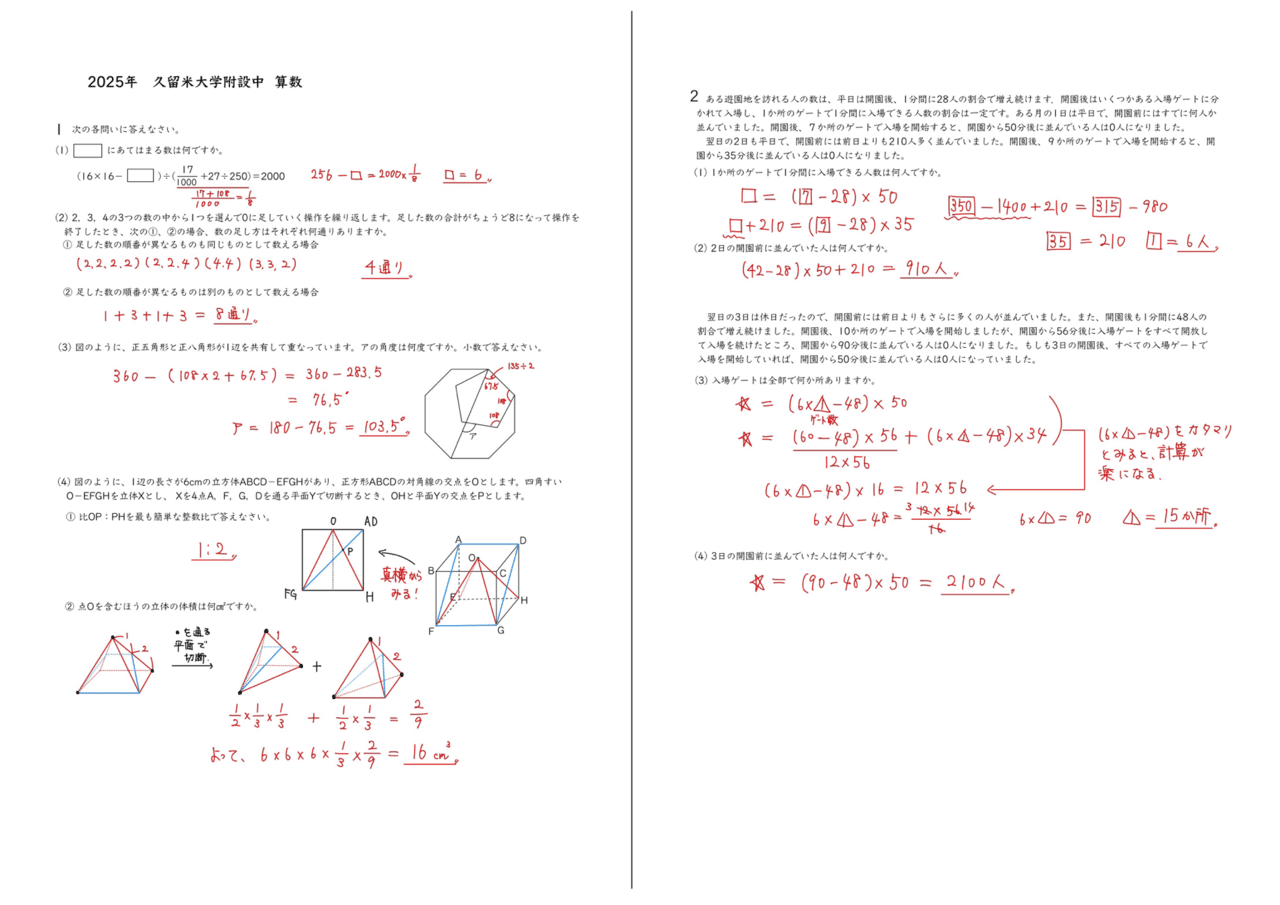 2025年　久留米大学附設中　算数
1　次の各問いに答えなさい。
(1) □ にあてはまる数は何ですか。
(16×16− □ )÷(17/1000+27÷250)=2000
17+108/1000=1/8
256−□=2000×1/8　□=6
(2) 2, 3, 4の3つの数の中から1つを選んで0に足していく操作を繰り返します。足した数の合計がちょうど8になって操作を
終了したとき、次の①、②の場合、数の足し方はそれぞれ何通りありますか。
① 足した数の順番が異なるものも同じものとして数える場合
(2,2,2,2)(2,2,4)(4,4)(3,3,2)　4通り。
② 足した数の順番が異なるものは別のものとして数える場合
1+3+1+3=8通り。
(3) 図のように、正五角形と正八角形が1辺を共有して重なっています。アの角度は何度ですか。小数で答えなさい。
360−(108×2+67.5)=360−283.5
=76.5°
ア=180−76.5=103.5°。
135÷2
67.5
108
108
ア
(4) 図のように、1辺の長さが6cmの立方体ABCD−EFGHがあり、正方形ABCDの対角線の交点をOとします。四角すい
O−EFGHを立体Xとし、Xを4点A、F、G、Dを通る平面Yで切断するとき、OHと平面Yの交点をPとします。
① 比OP：PHを最も簡単な整数比で答えなさい。
1:2。
O
AD
P
FG
H
真横から
みる!
A
D
O
B
C
E
H
F
G
② 点Oを含むほうの立体の体積は何cm³ですか。
1
2
•を通る
平面で
切断.
1
2
+
1
2
1/2×1/3×1/3　+　1/2×1/3=2/9
よって、6×6×6×1/3×2/9=16cm³。
2　ある遊園地を訪れる人の数は、平日は開園後、1分間に28人の割合で増え続けます。開園後はいくつかある入場ゲートに分
かれて入場し、1か所のゲートで1分間に入場できる人数の割合は一定です。ある月の1日は平日で、開園前にはすでに何人か
並んでいました。開園後、7か所のゲートで入場を開始すると、開園から50分後に並んでいる人は0人になりました。
翌日の2日も平日で、開園前には前日よりも210人多く並んでいました。開園後、9か所のゲートで入場を開始すると、開
園から35分後に並んでいる人は0人になりました。
(1) 1か所のゲートで1分間に入場できる人数は何人ですか。
□=(7−28)×50
□+210=(9−28)×35
350−1400+210=315−980
35=210　1=6人。
(2) 2日の開園前に並んでいた人は何人ですか。
(42−28)×50+210=910人。
翌日の3日は休日だったので、開園前には前日よりもさらに多くの人が並んでいました。また、開園後も1分間に48人の
割合で増え続けました。開園後、10か所のゲートで入場を開始しましたが、開園から56分後に入場ゲートをすべて開放し
て入場を続けたところ、開園から90分後に並んでいる人は0人になりました。もしも3日の開園後、すべての入場ゲートで
入場を開始していれば、開園から50分後に並んでいる人は0人になっていました。
(3) 入場ゲートは全部で何か所ありますか。
☆=(6×△1−48)×50
ゲート数
☆=(60−48)×56+(6×△1−48)×34
12×56
(6×△1−48)をカタマリ
とみると、計算が
楽になる.
(6×△1−48)×16=12×56
6×△1−48=12×56/16　3　14
6×△1=90　△1=15か所。
(4) 3日の開園前に並んでいた人は何人ですか。
☆=(90−48)×50=2100人。